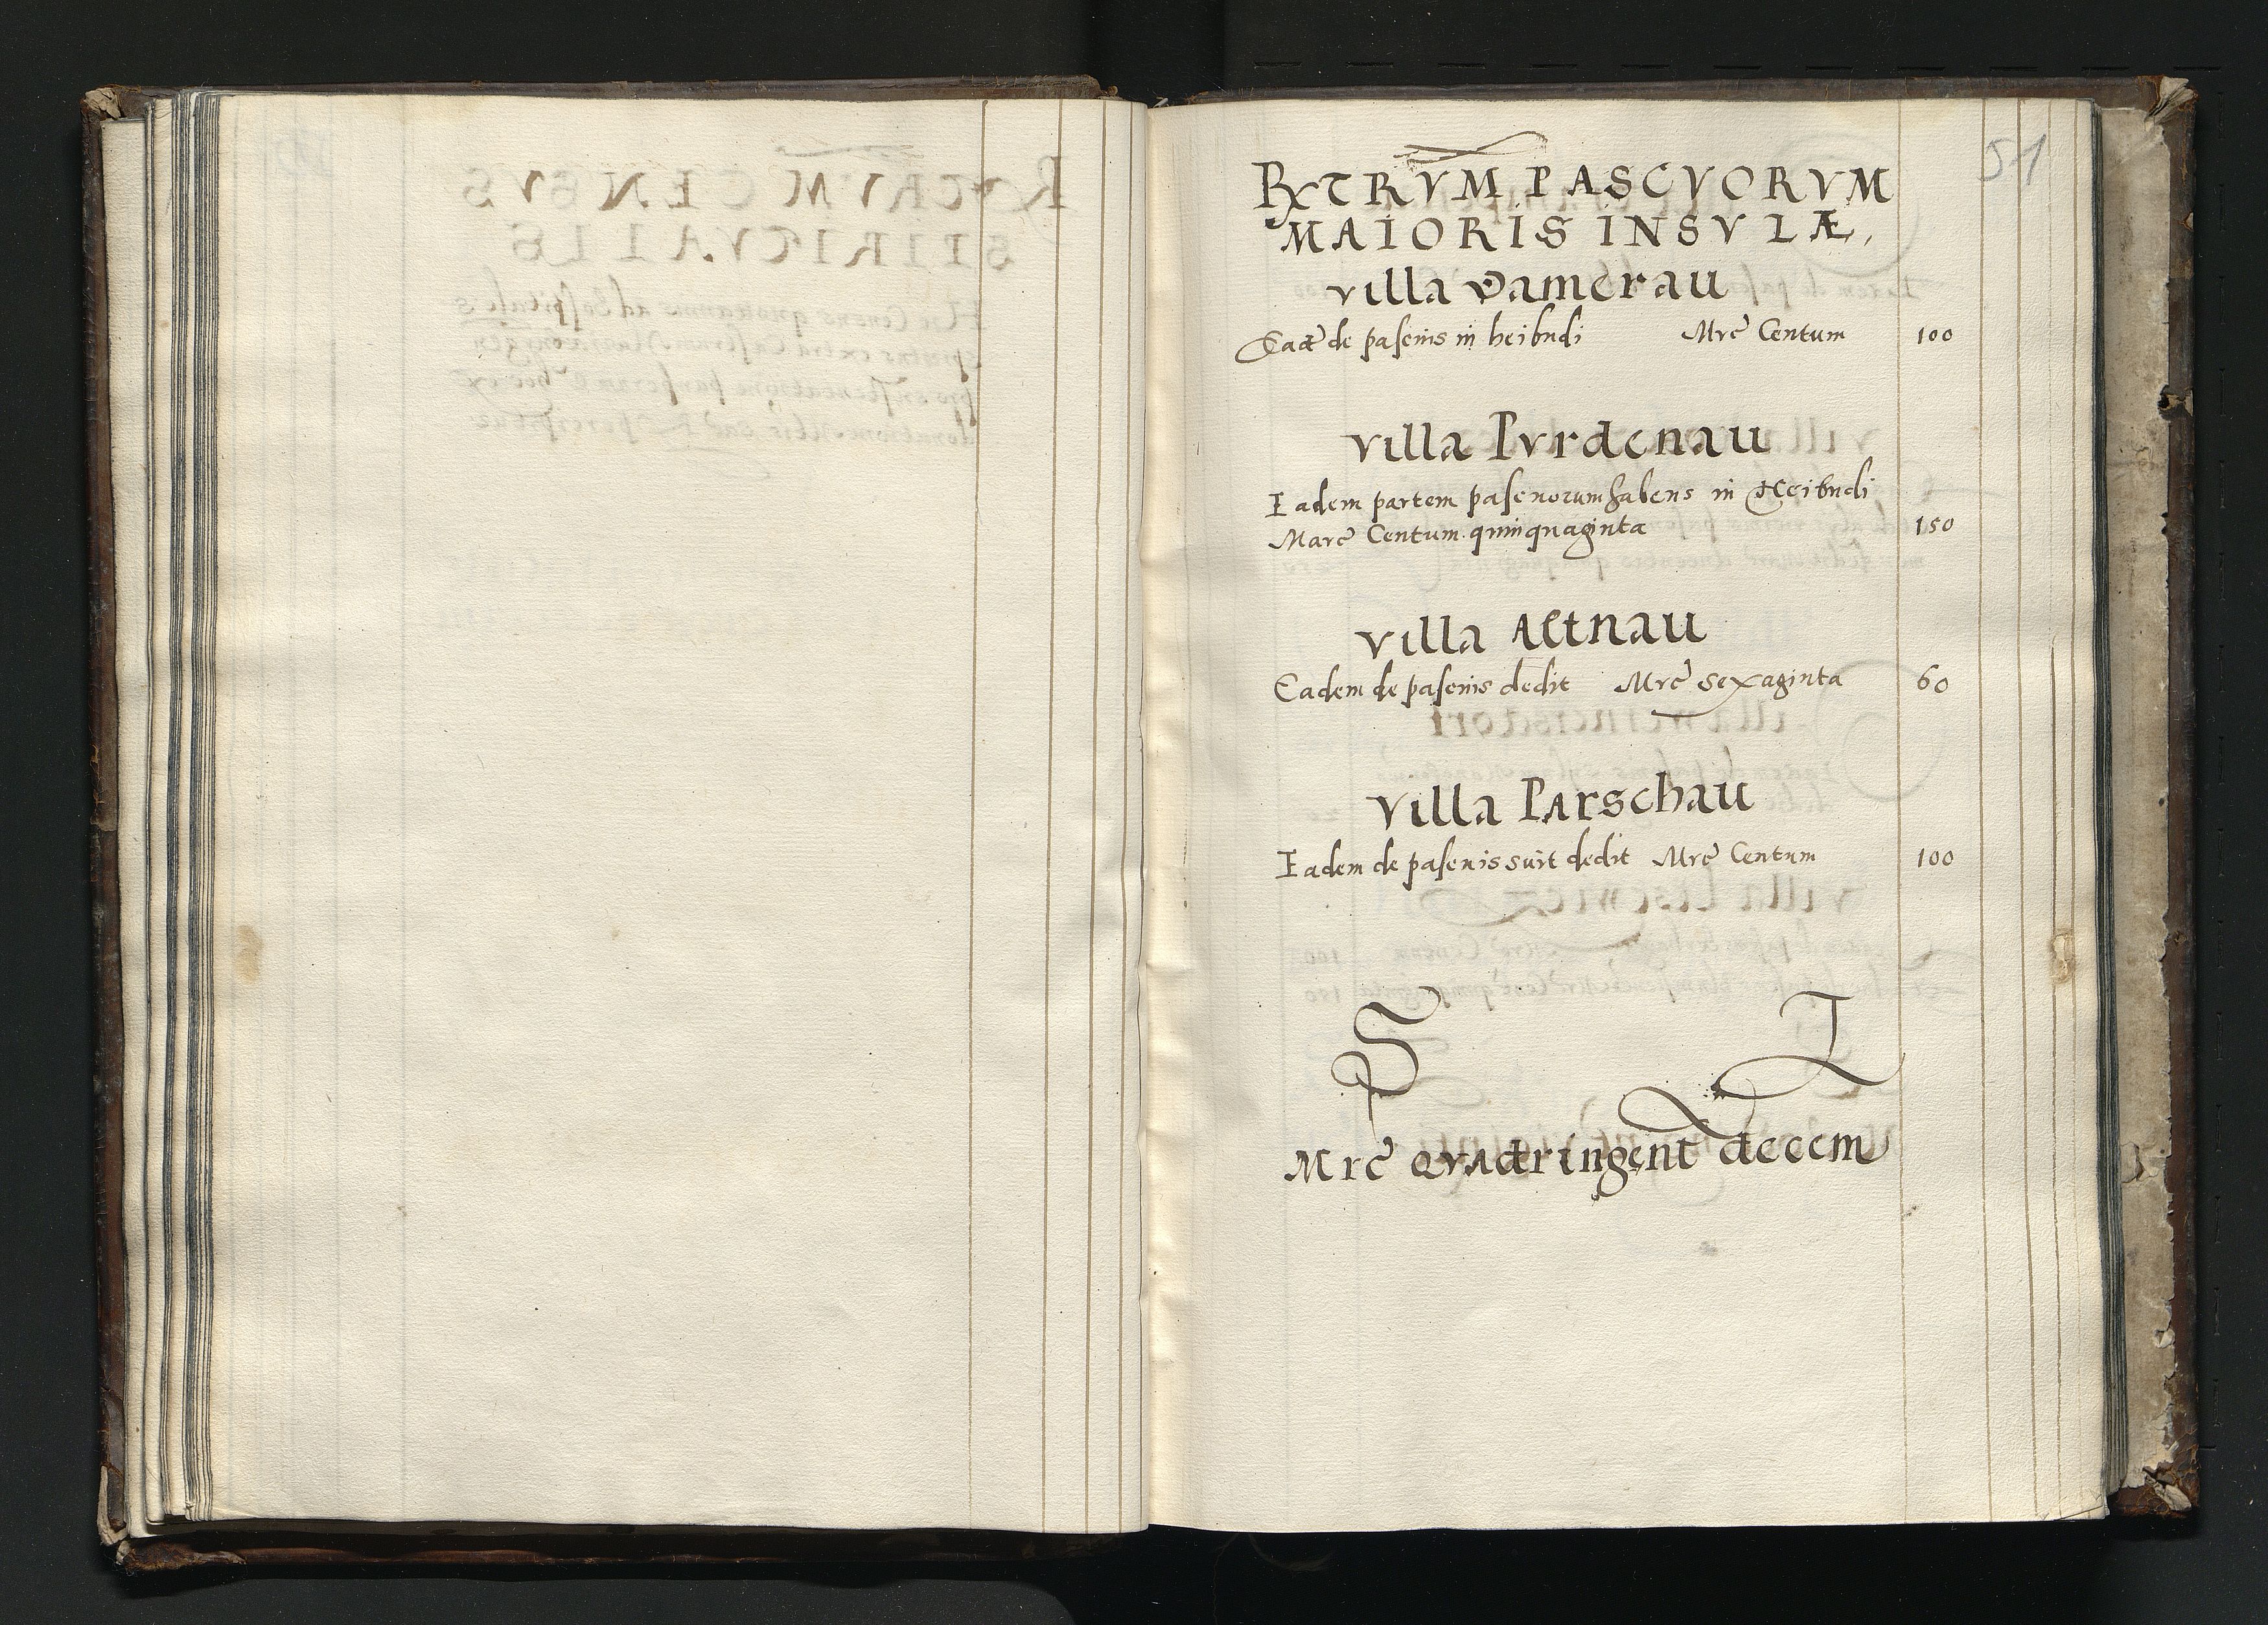 51
RXTRVM PASCVORVM
MAIORIS INSVLÆ,
villa Damerau
Eadē de pascuis in heibudi Mrc Centum 100
villa Pvrdenau
Eadem partem pascuorum habens in Heibudi
Marc Centum quinquaginta 150
villa Altnau
Eadem de pascuis dedit Mrc Sexaginta 60
villa Parschau
Eadem de pascuis suis dedit Mrc Centum 100
S T
Mrc Qvadringent decem